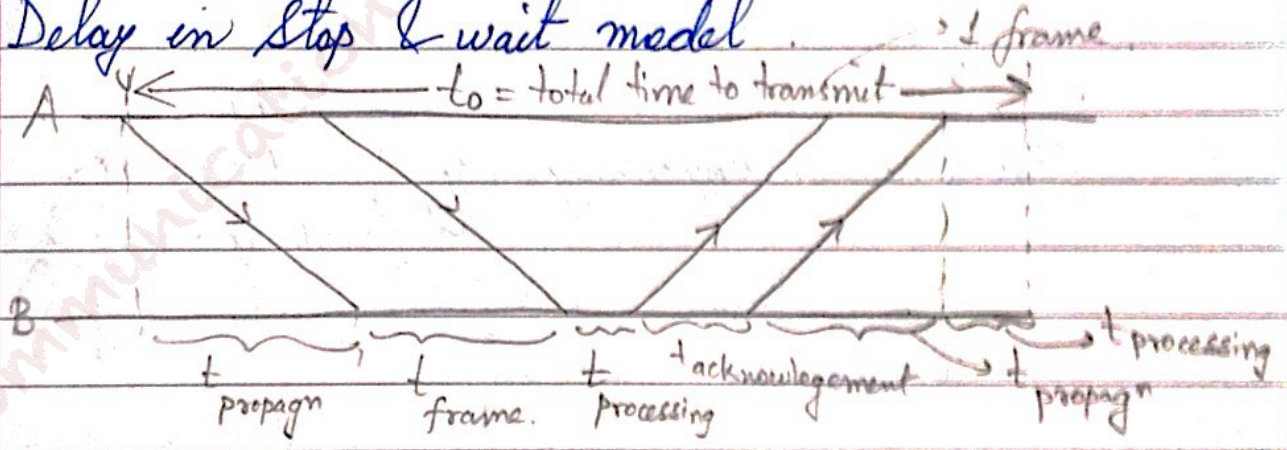 Delay in Stop & wait model.
1 frame
A
t₀ = total time to transmit
B
t propagⁿ
t frame.
t processing
t acknowlegement
t propagⁿ
t processing
mmunication